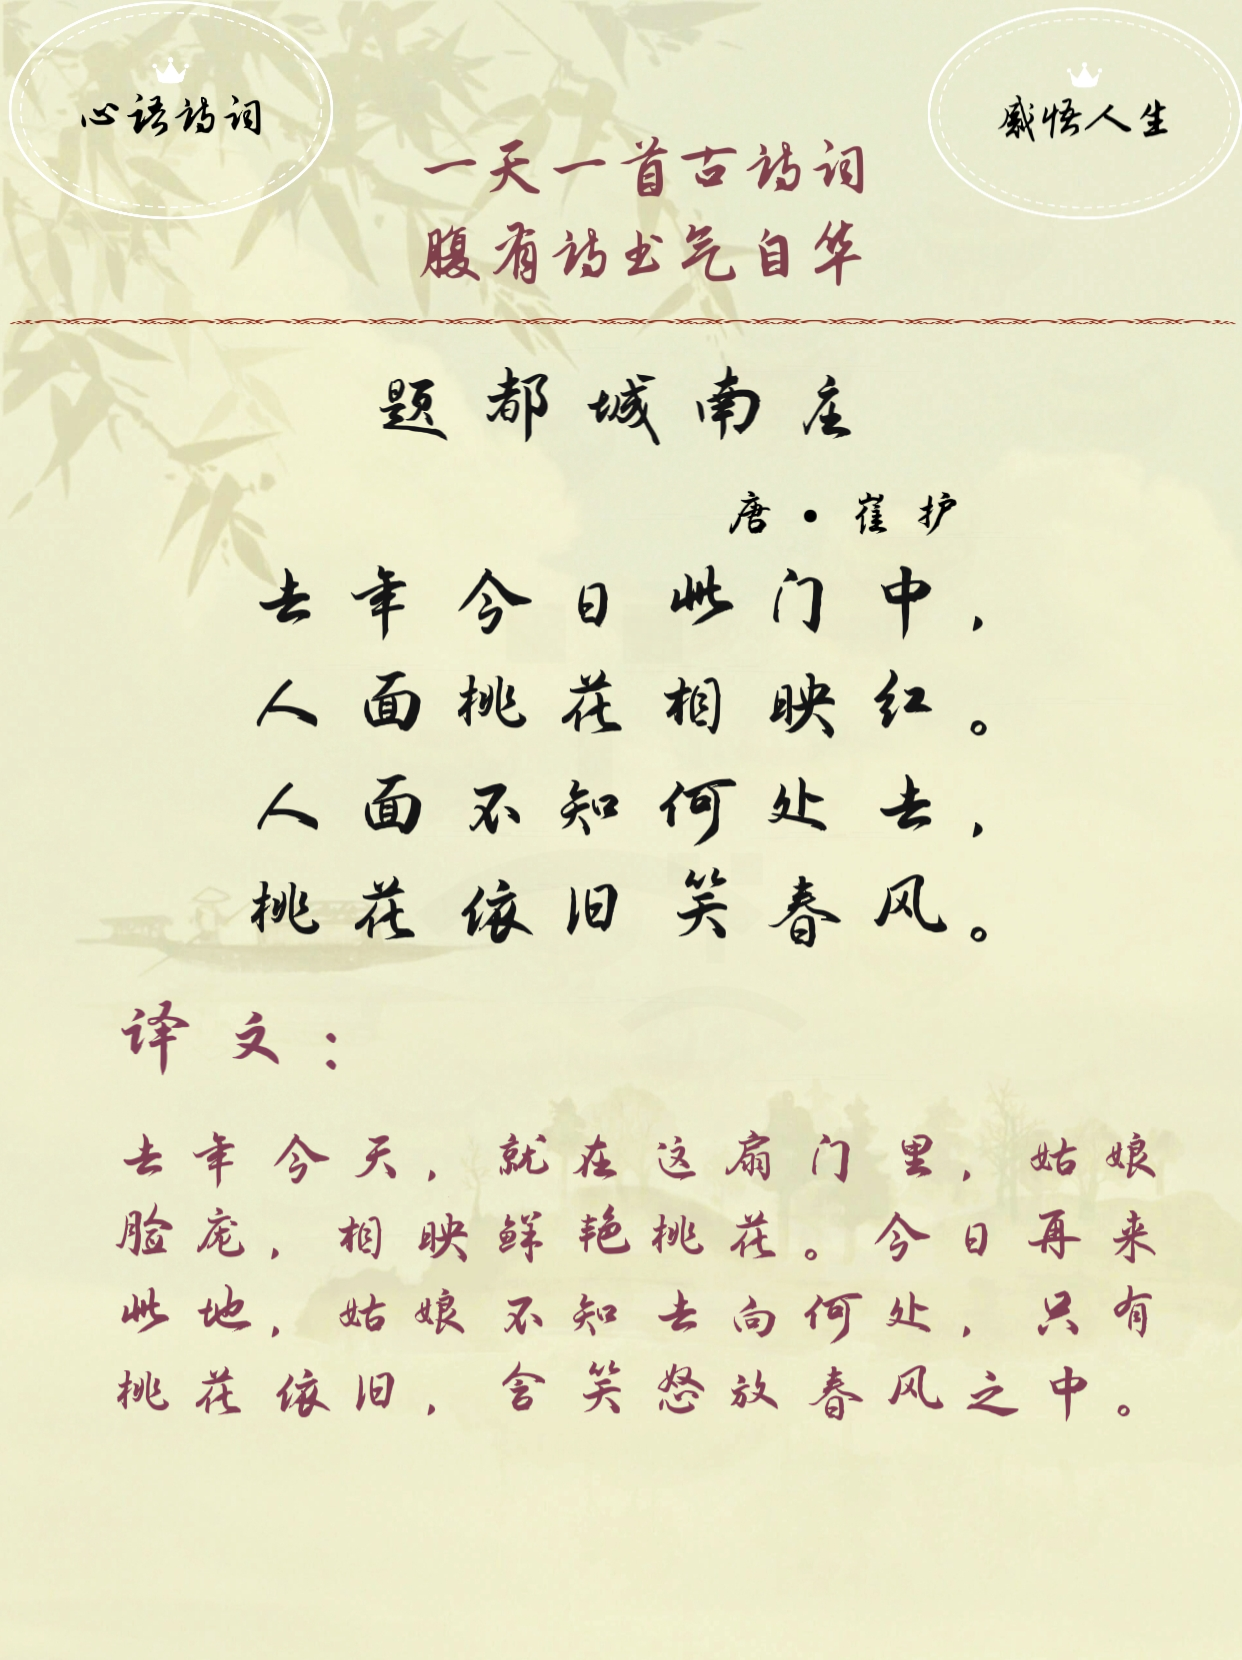 心语诗词
感悟人生
一天一首古诗词
腹有诗书气自华
题都城南庄
唐·崔护
去年今日此门中，
人面桃花相映红。
人面不知何处去，
桃花依旧笑春风。
译文：
去年今天，就在这扇门里，姑娘
脸庞，相映鲜艳桃花。今日再来
此地，姑娘不知去向何处，只有
桃花依旧，含笑怒放春风之中。